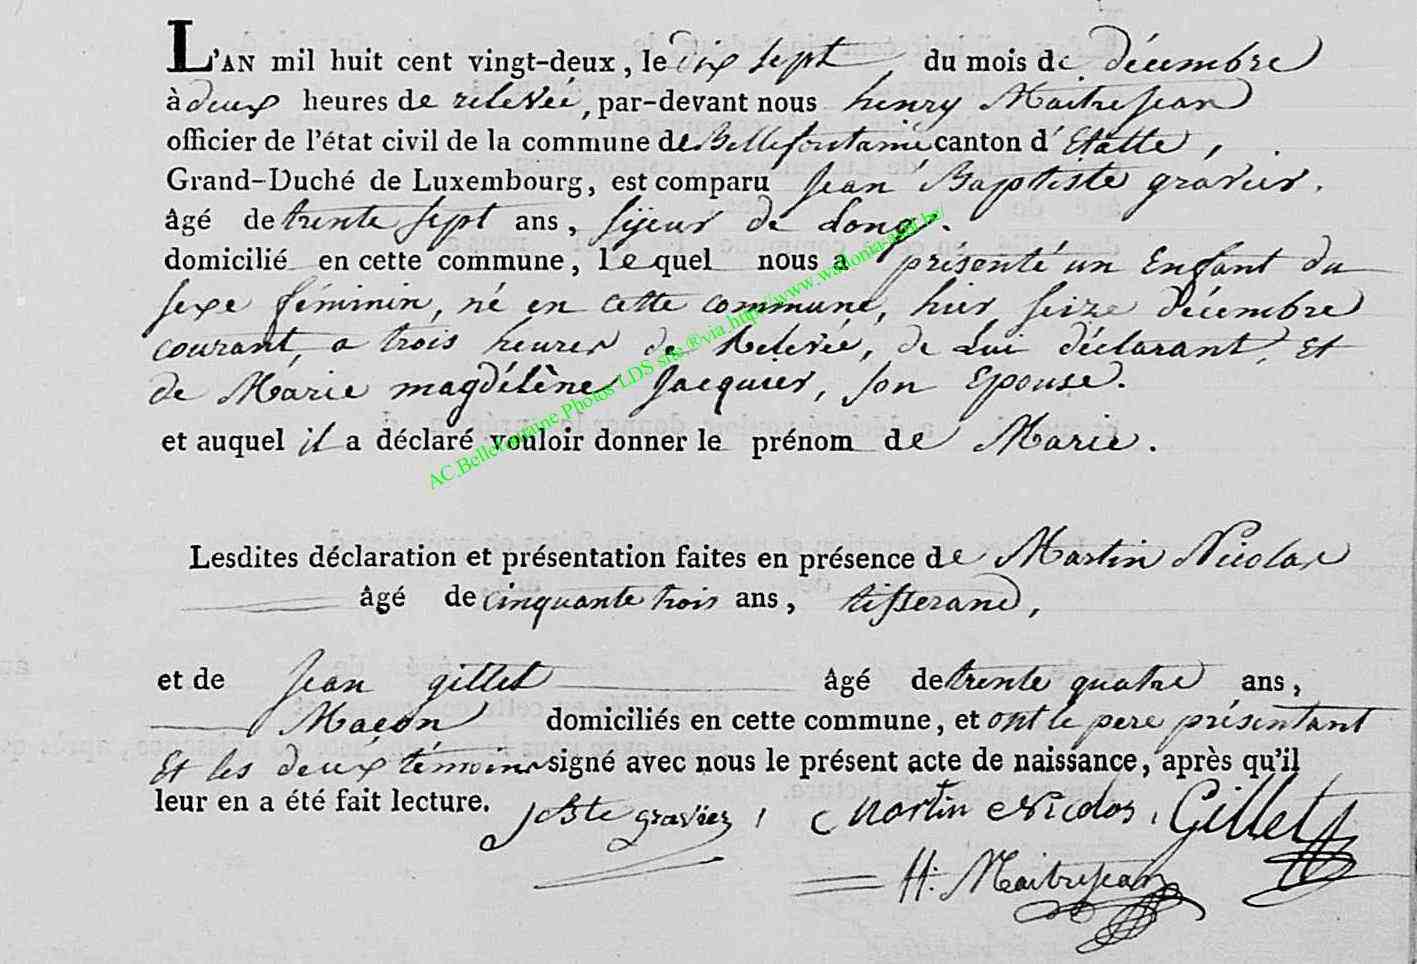 L'AN mil huit cent vingt-deux, le dix sept du mois de décembre
à deux heures de relevée, par-devant nous henry Maitrejean
officier de l'état civil de la commune de Bellefontaine canton d'Etalle,
Grand-Duché de Luxembourg, est comparu Jean Baptiste gravier.
âgé de trente sept ans, sijeur de Long.
domicilié en cette commune, lequel nous a présenté un Enfant du
sexe féminin, né en cette commune, hier seize décembre
courant, a trois heures de Relevée, de Lui déclarant, Et
de Marie magdélène Jacquier, son Epouse.
et auquel il a déclaré vouloir donner le prénom de Marie.
AC.Bellefontaine.Photos LDS site ®via http://www.wallonia-asbl.be/
Lesdites déclaration et présentation faites en présence de Martin Nicolas
âgé de cinquante trois ans, tisserand,
et de Jean gillet âgé de trente quatre ans,
Maçon domiciliés en cette commune, et ont le pere présentant
Et les deux témoins signé avec nous le présent acte de naissance, après qu'il
leur en a été fait lecture. J Bte graviez, Martin Nicolas, Gillet
H: Maitrejean